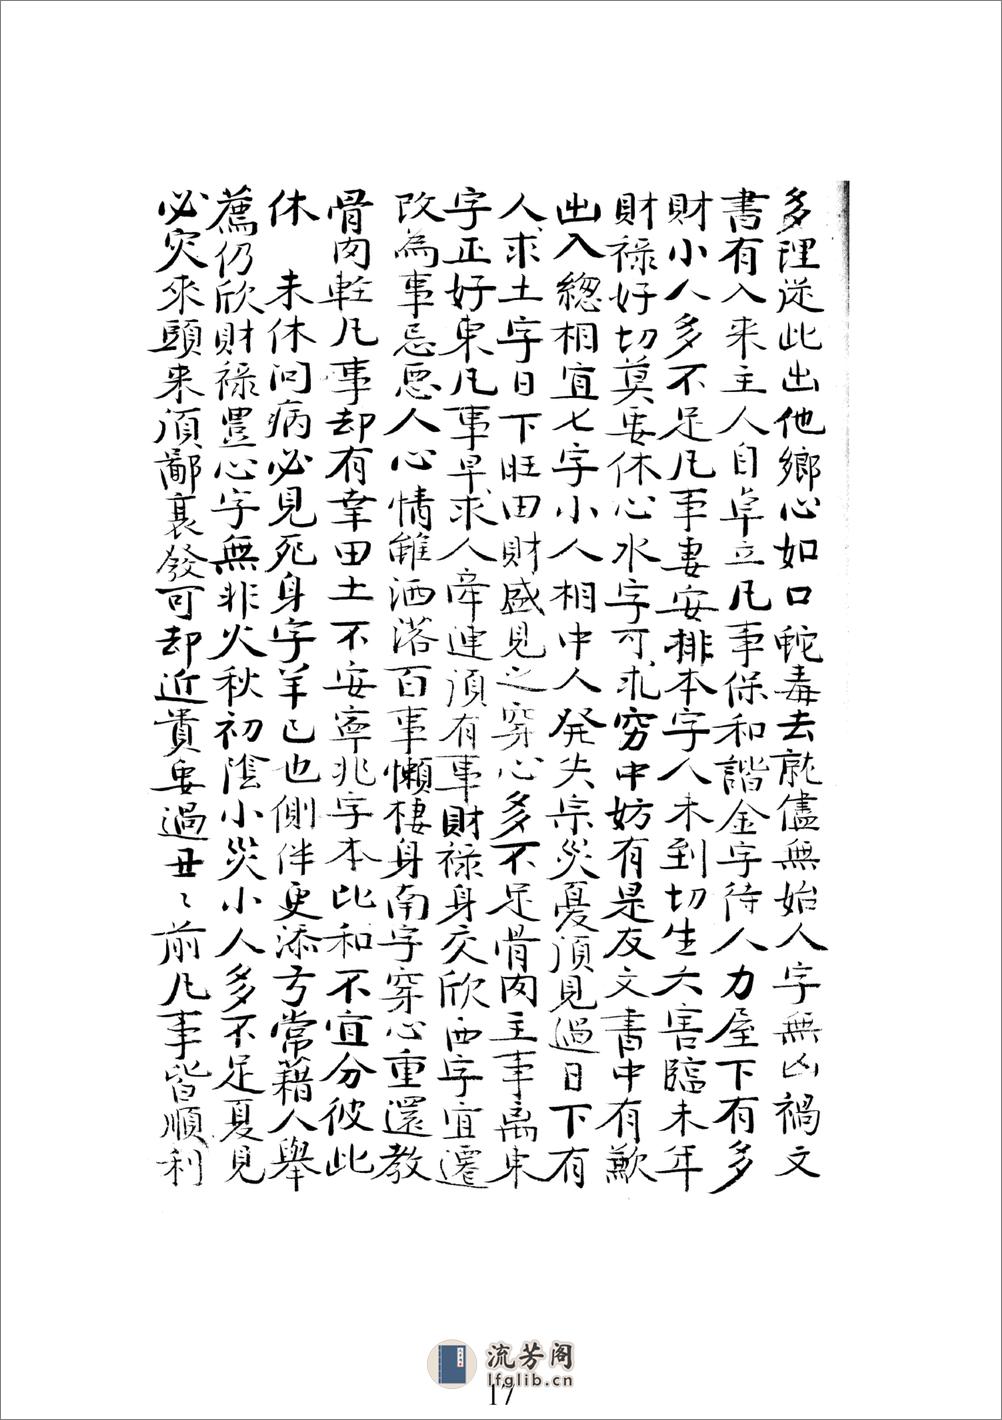 多理從此出他鄉心如口蛇毒去就儘無始人字無凶禍文
書有入来主人自卓立凡事保和諧金字待人力屋下有多
財小人多不足凡事妻安排本字人未到切生大害臨未年
財禄好切莫要休心水字可求穷中妨有是友文書中有歉
出入總相宜七字小人相中人発失宗災憂須見過日下有
人求土字日下旺田財盛見之穿心多不足骨肉主事离東
字正好東凡事早求人牽連須有事財禄身交欣西字宜遷
改為事忌悪人心情雖洒落百事懶棲身南字穿心重還教
骨肉軽凡事却有幸田土不安寧兆字本比和不宜分彼此
休　未休问病必見死身字羊己也側伴更添亏常藉人舉
薦仍欣財禄豊心字無非火秋初陰小災小人多不足夏見
必灾來頭来須鄙衰發可却近貴要過丑〻前凡事皆順利
流芳阁
lfglib.cn
17